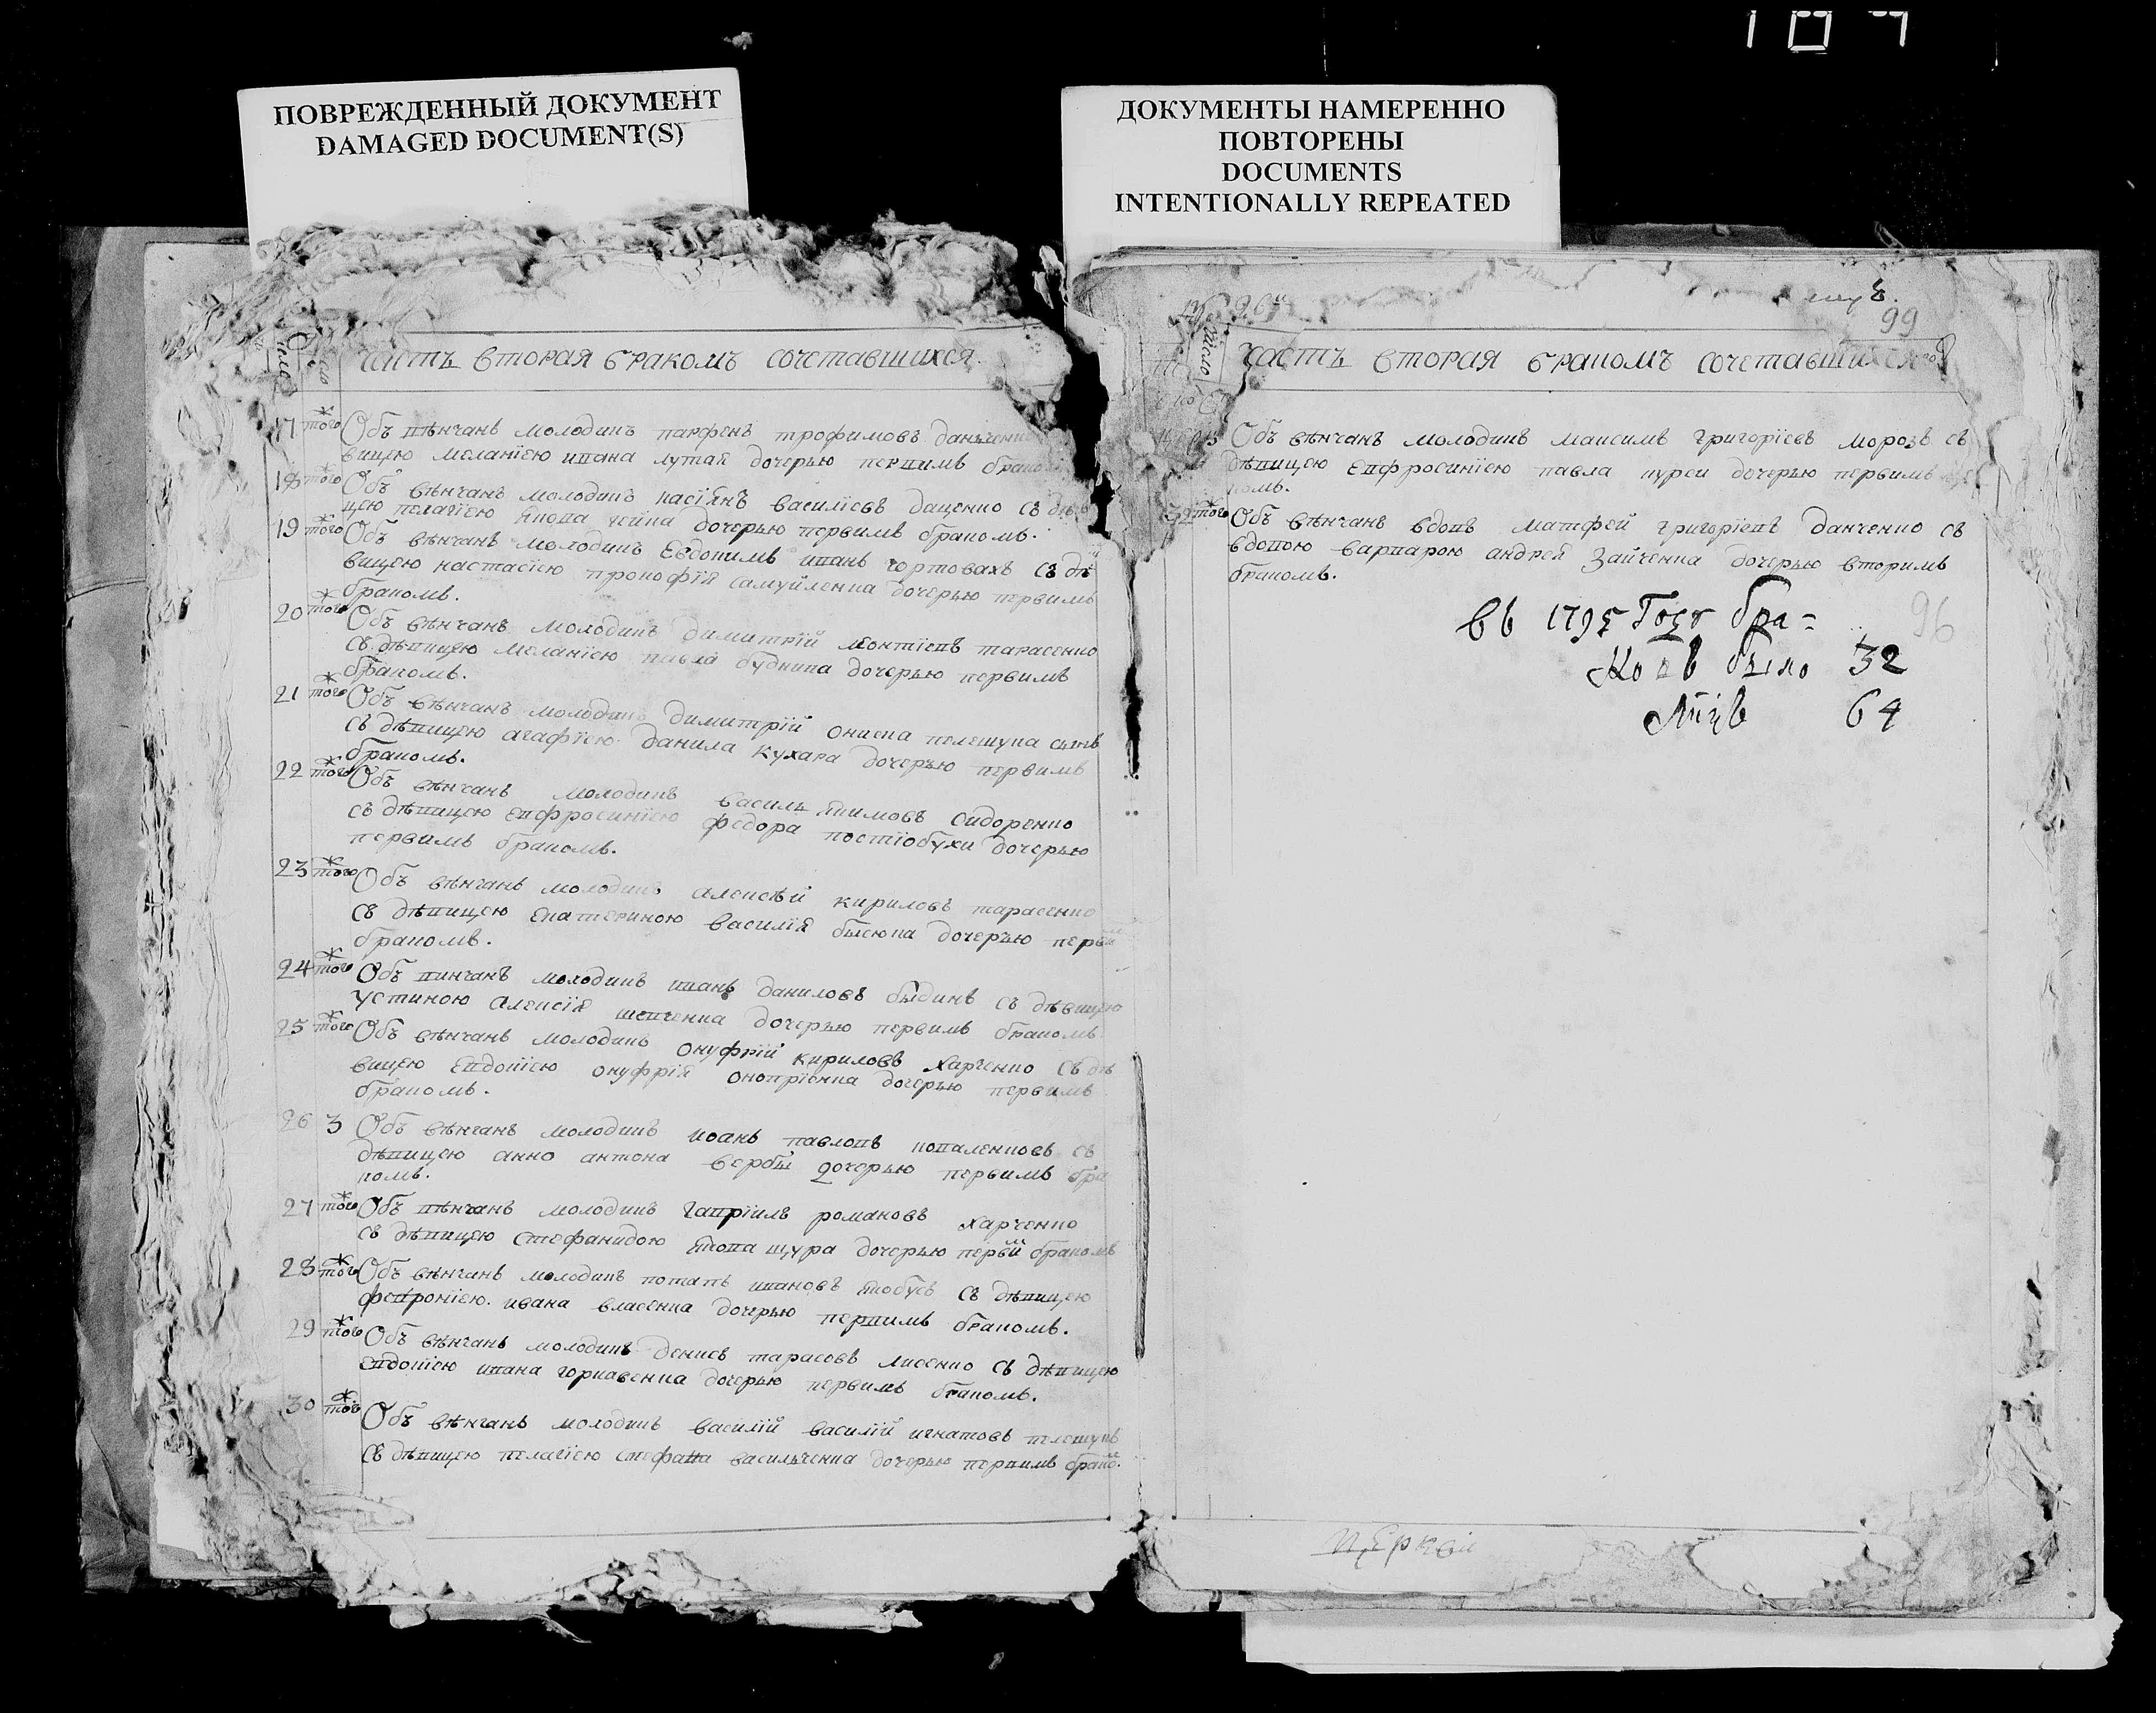 ПОВРЕЖДЕННЫЙ ДОКУМЕНТ
DAMAGED DOCUMENT(S)
часть вторая бракомъ сочетавшихся.
17 того Объ вѣнчанъ молодикъ парфенъ трофимовъ
вицею меланіею ивана лутая дочерью первимъ
18 того Объ вѣнчанъ молодикъ касіянъ василіевъ даценко съ
цею пелагіею якова дочерью первимъ бракомъ.
19 того Объ вѣнчанъ молодикъ Евдокимъ иванъ чортовахъ съ дѣ
вицею настасіею прокофія самуйленка дочерью первимъ
бракомъ.
20 того Объ вѣнчанъ молодикъ димитрій леонтіевъ тарасенко
съ дѣвицею меланіею павла будника дочерью первимъ
бракомъ.
21 того Объ вѣнчанъ молодикъ димитрій ониска пелешука синъ
съ дѣвицею агафіею данила кухара дочерью первимъ
бракомъ.
22 того Объ вѣнчанъ молодикъ василь якимовъ сидоренко
съ дѣвицею евфросиніею федора постіобухи дочерью
первимъ бракомъ.
23 того Объ вѣнчанъ молодикъ алексѣй кириловъ тарасенко
съ дѣвицею екатериною василія бисюка дочерью первй
бракомъ.
24 того Объ винчанъ молодикъ иванъ даниловъ быдикъ съ дѣвицею
устиною алексія шевченка дочерью первимъ бракомъ
25 того Объ вѣнчанъ молодикъ онуфрій кириловъ харченко съ дѣ
вицею евдокіею онуфрія онопріенка дочерью первимъ
бракомъ.
26 3 Объ вѣнчанъ молодикъ иоанъ павловъ коваленковъ съ
дѣвицею анно антона вербы дочерью первимъ бра
комъ.
27 того Объ вѣнчанъ молодикъ гавріилъ романовъ харченко
съ дѣвицею стефанидою якова щура дочерью первй бракомъ
28 того Объ вѣнчанъ молодикъ потапъ ивановъ якобусъ съ дѣвицею
февроніею ивана власенка дочерью первимъ бракомъ.
29 того Объ вѣнчанъ молодикъ денисъ тарасовъ лисенко съ дѣвицею
евдокіею ивана горкавенка дочерью первимъ бракомъ.
30 того Объ вѣнчанъ молодикъ василій василій игнатовъ пелешукъ
съ дѣвицею пелагіею стефана васильченка дочерью первимъ брако.
ДОКУМЕНТЫ НАМЕРЕННО
ПОВТОРЕНЫ
DOCUMENTS
INTENTIONALLY REPEATED
99
часть вторая бракомъ сочетавшихся
Объ вѣнчанъ молодикъ максимъ григоріевъ морозъ съ
дѣвицею евфросиніею павла курси дочерью первимъ
комъ.
32 того Объ вѣнчанъ вдовъ матфей григоріевъ данченко съ
вдовою варварою андрея зайченка дочерью вторимъ
бракомъ.
въ 1795 Году бра=
96
ковъ было 32
Лицъ 64